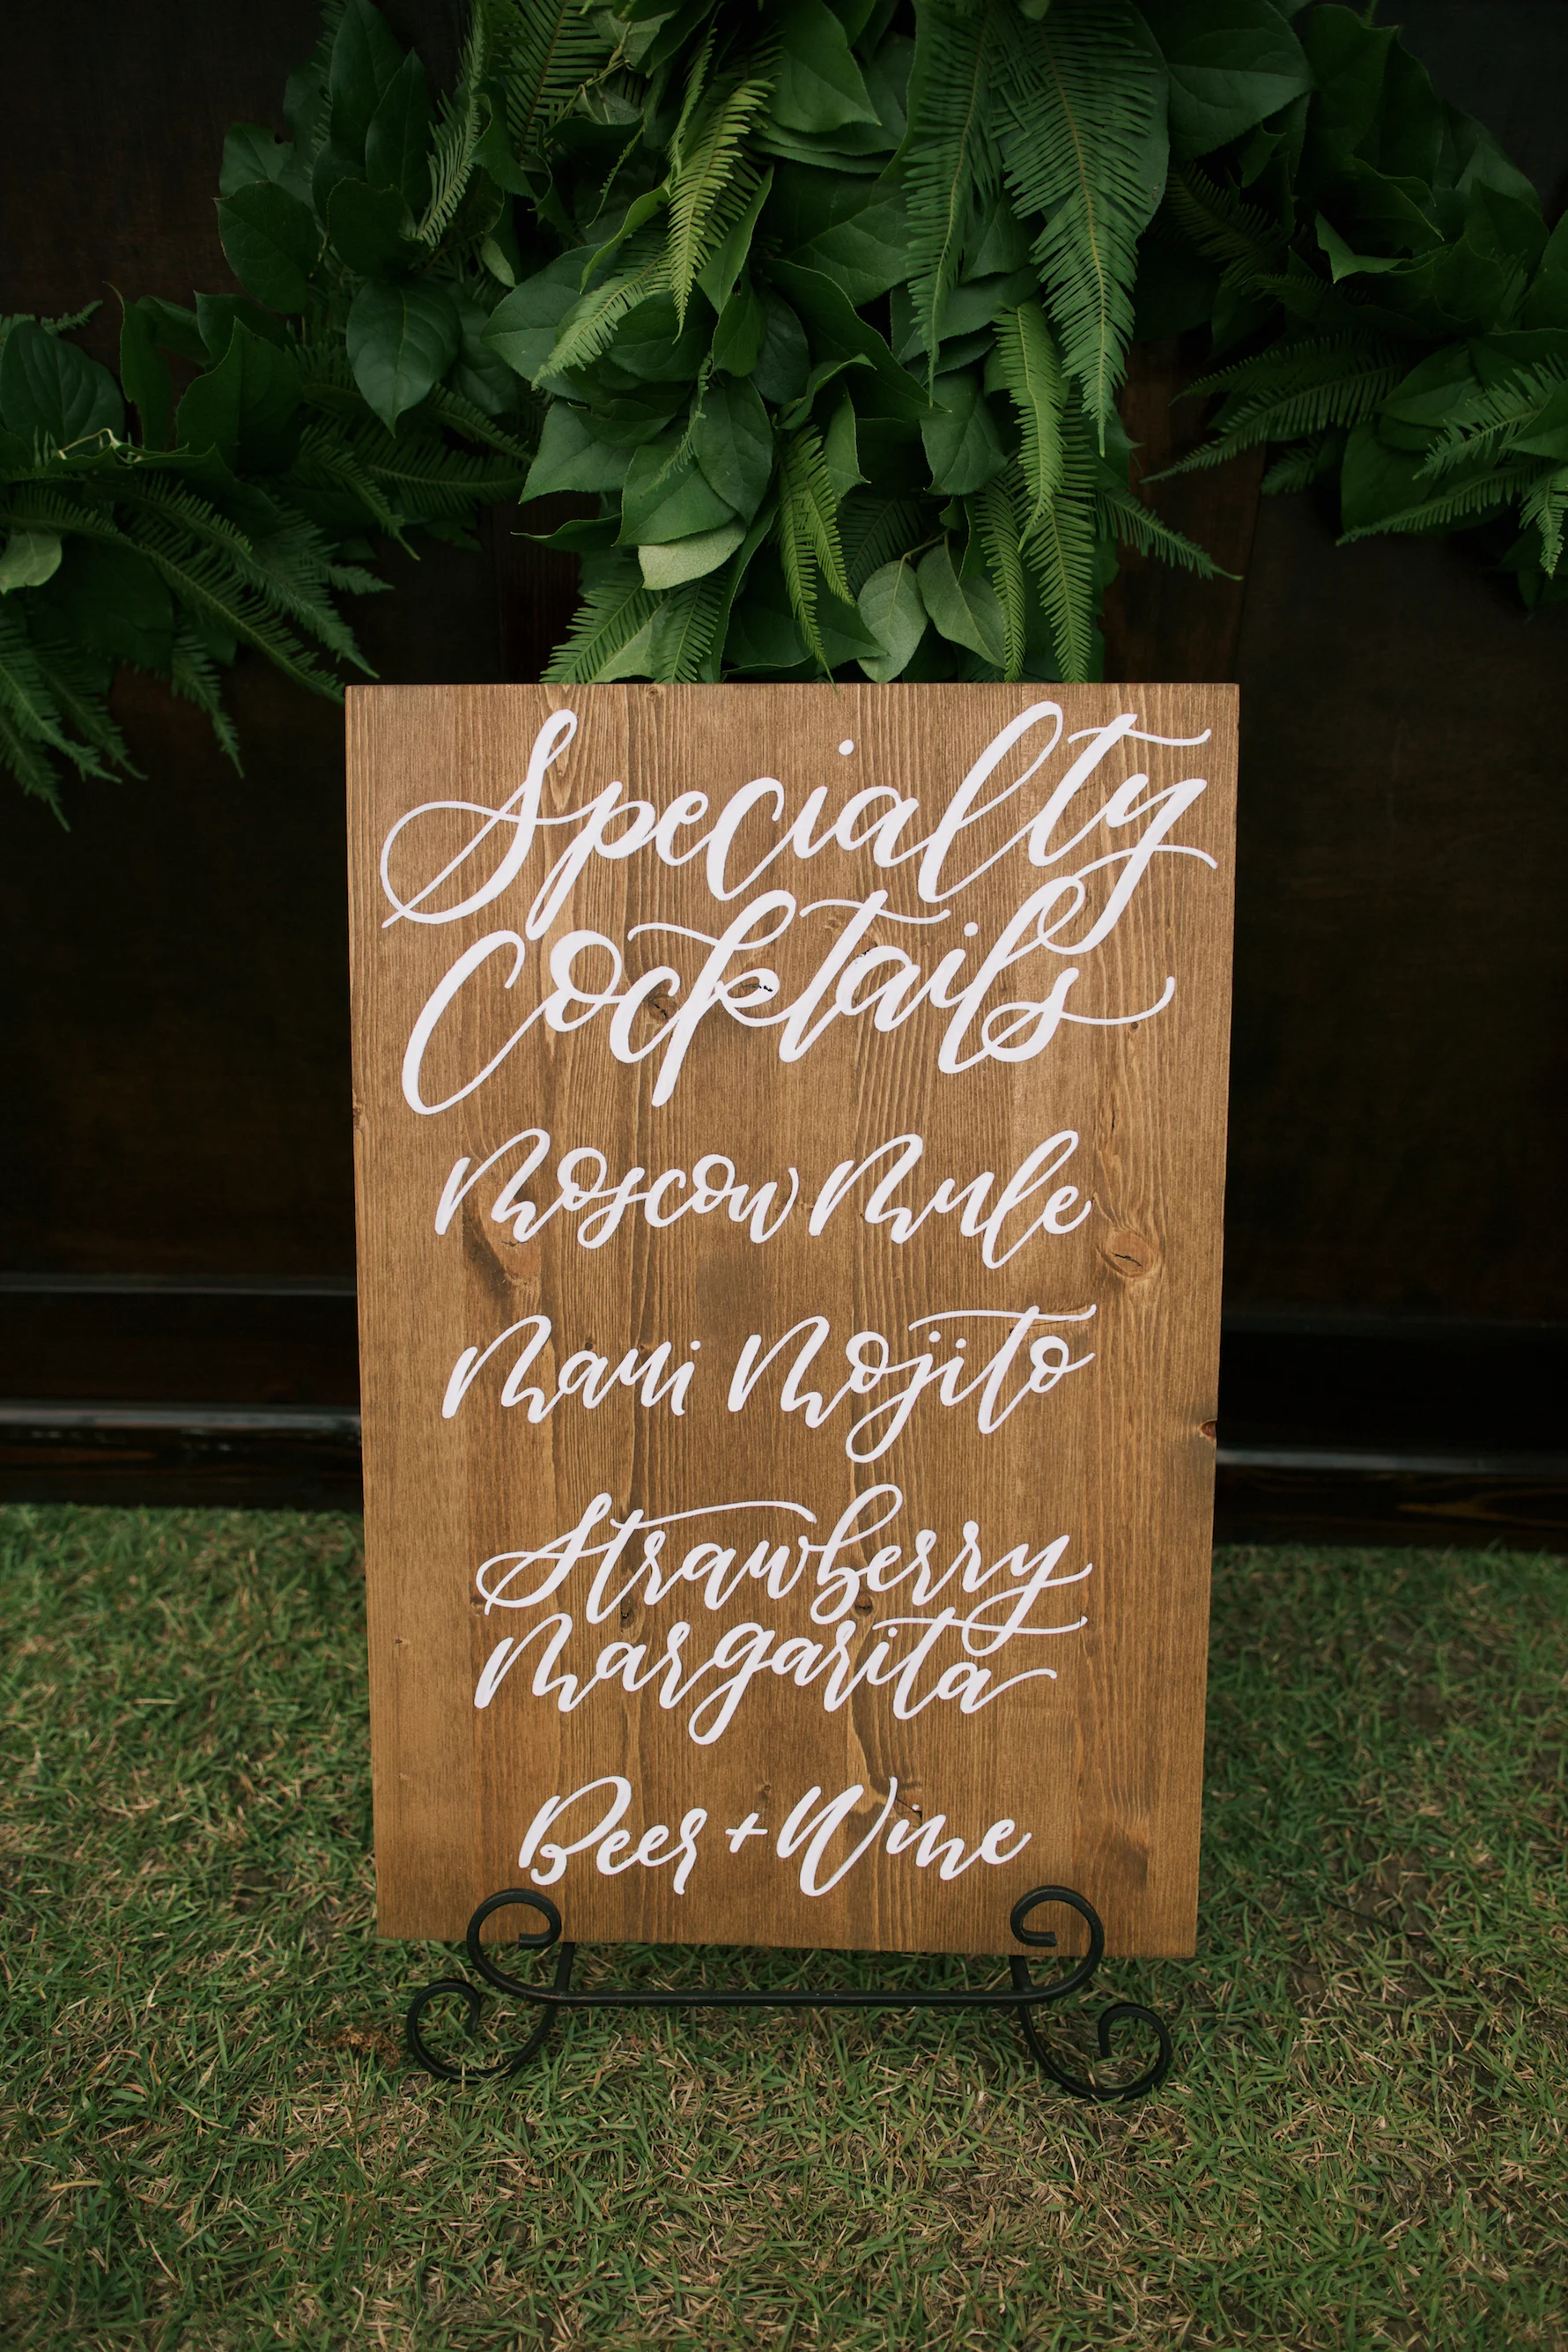 Specialty
Cocktails
Moscow Mule
Maui Mojito
Strawberry
Margarita
Beer + Wine